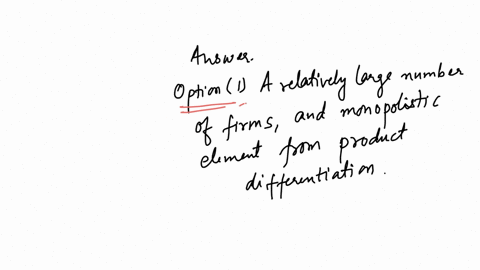 Answer.
Option (1) A relatively large number
of firms, and monopolistic
element from product
differentiation.